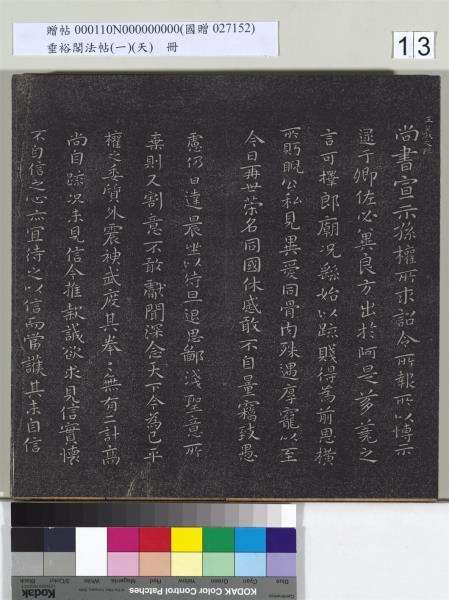 贈帖 000110N000000000(國贈 027152)
垂裕閣法帖(一)(天) 冊
13
王羲之臨
尚書宣示孫權所求詔令所報所以博示
逮于卿佐必冀良方出於阿是芻蕘之
言可擇郎廟況繇始以疏賤得為前恩橫
所眄睨公私見異愛同骨肉殊遇厚寵以至
今日再世榮名同國休慼敢不自量竊致愚
慮仍日達晨坐以待旦退思鄙淺聖意所
棄則又割意不敢獻聞深念天下今為已平
權之委質外震神武度其拳〻無有二計高
尚自疏況未見信今推款誠欲求見信實懷
不自信之心亦宜待之以信而當護其未自信
Blue
Cyan
Green
Yellow
Red
Magenta
White
3/Color
Black
Kodak
KODAK Color Control Patches